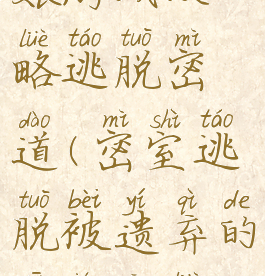 lüè táo tuō mì
略逃脱密
dào mì shì táo
道(密室逃
tuō bèi yí qì de
脱被遗弃的